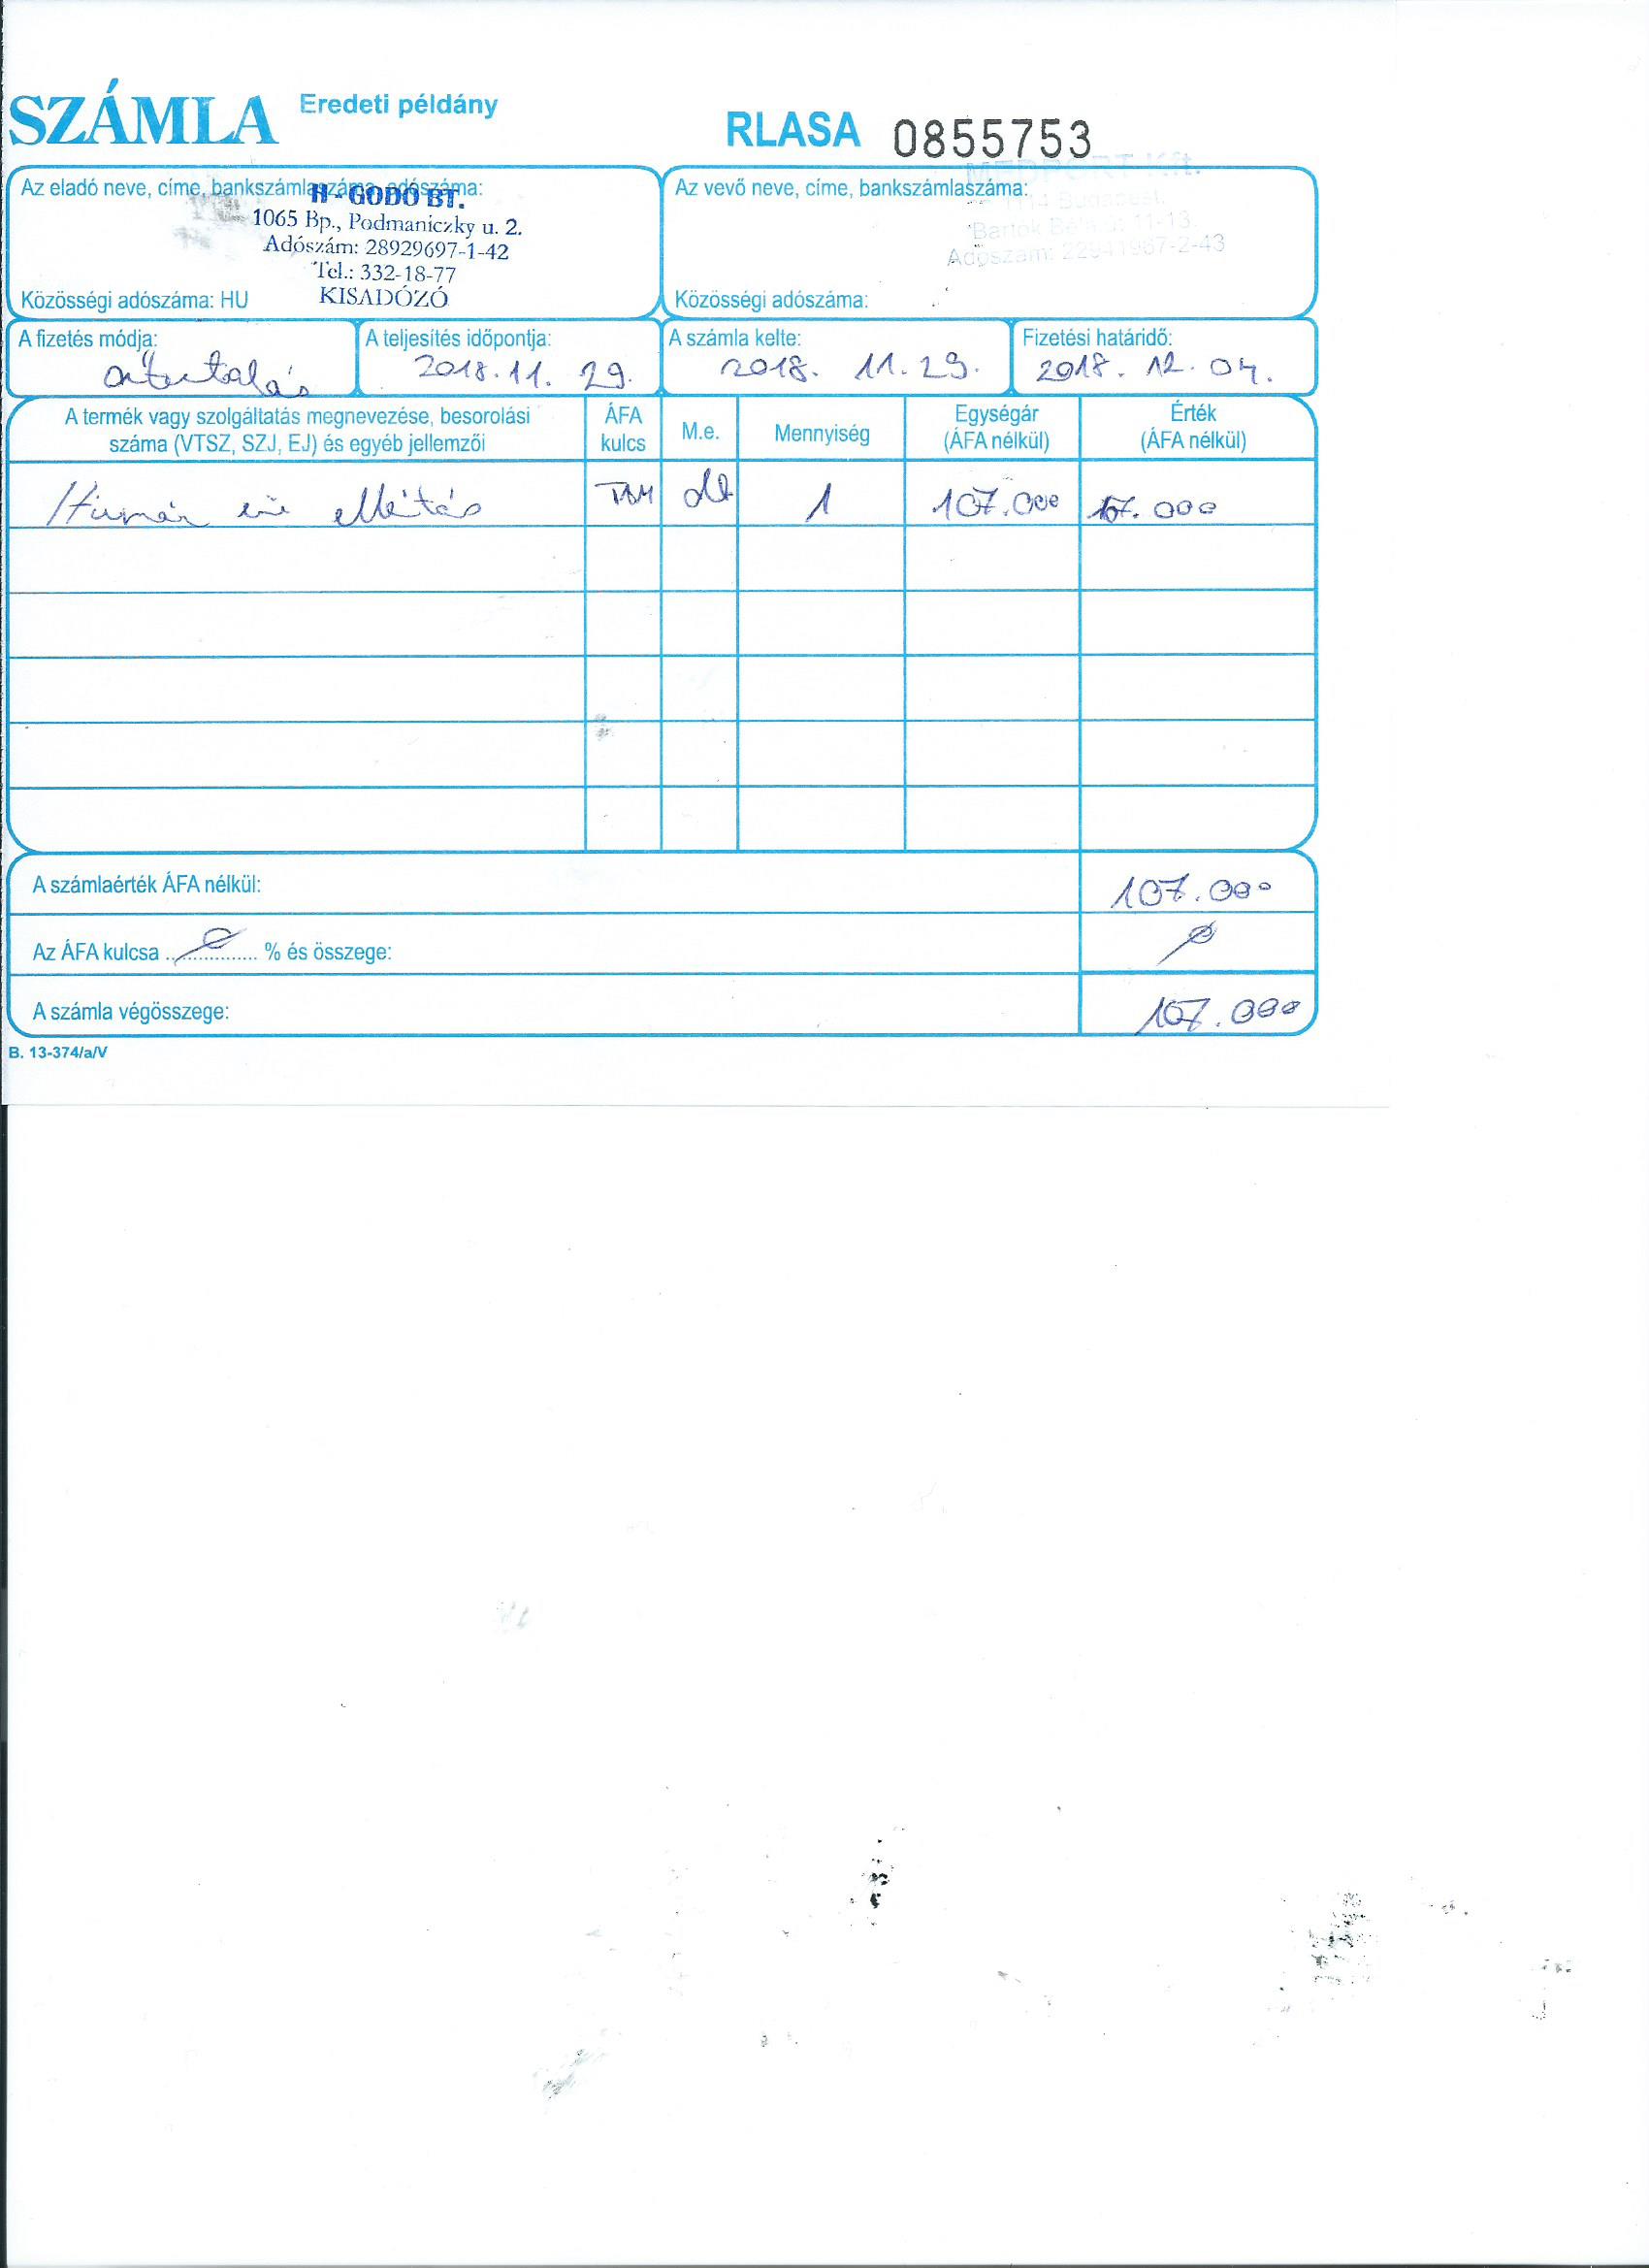 SZÁMLA Eredeti példány
RLASA 0855753
Az eladó neve, címe, bankszámlaszáma, adószáma:
H-GODO BT.
1065 Bp., Podmaniczky u. 2.
Adószám: 28929697-1-42
Tel.: 332-18-77
KISADÓZÓ
Közösségi adószáma: HU
Az vevő neve, címe, bankszámlaszáma:
MEDPORT Kft.
1114 Budapest,
Bartók Béla 11-13.
Adószám: 22941967-2-43
Közösségi adószáma:
A fizetés módja: átutalás
A teljesítés időpontja: 2018.11.29.
A számla kelte: 2018. 11.29.
Fizetési határidő: 2018. 12. 04.
A termék vagy szolgáltatás megnevezése, besorolási száma (VTSZ, SZJ, EJ) és egyéb jellemzői ÁFA kulcs M.e. Mennyiség Egységár (ÁFA nélkül) Érték (ÁFA nélkül)
Humán eü ellátás 1 107.000 107.000
A számlaérték ÁFA nélkül: 107.000
Az ÁFA kulcsa ............... % és összege:
A számla végösszege: 107.000
B. 13-374/a/V